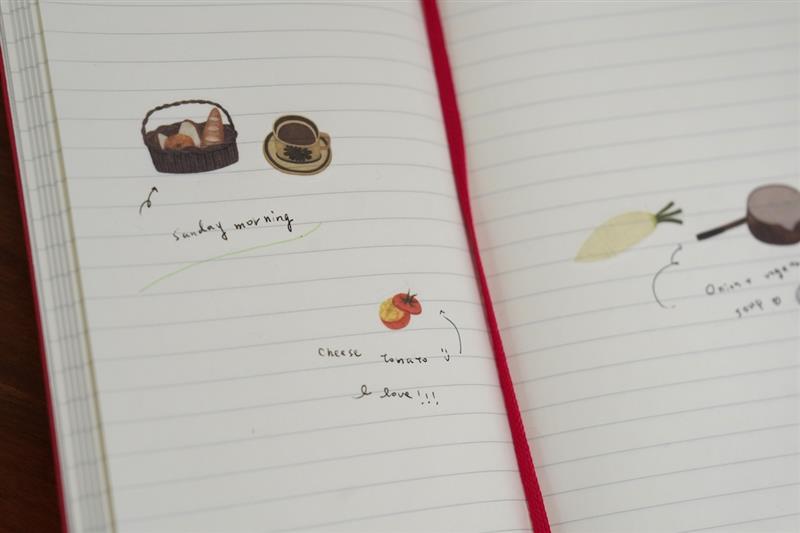 Sunday morning
cheese tomato
I love!!!
Onion
soup